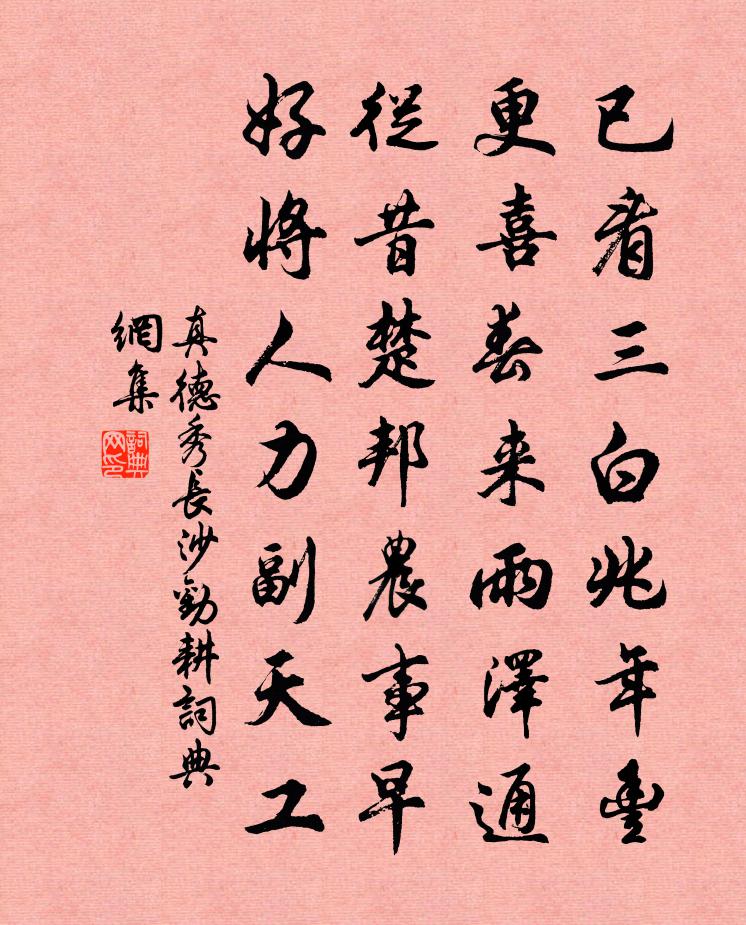 已看三白兆年豐
更喜春来雨澤通
從昔楚邦農事早
好將人力副天工
真德秀長沙勸耕詞典
網集
詞典網印